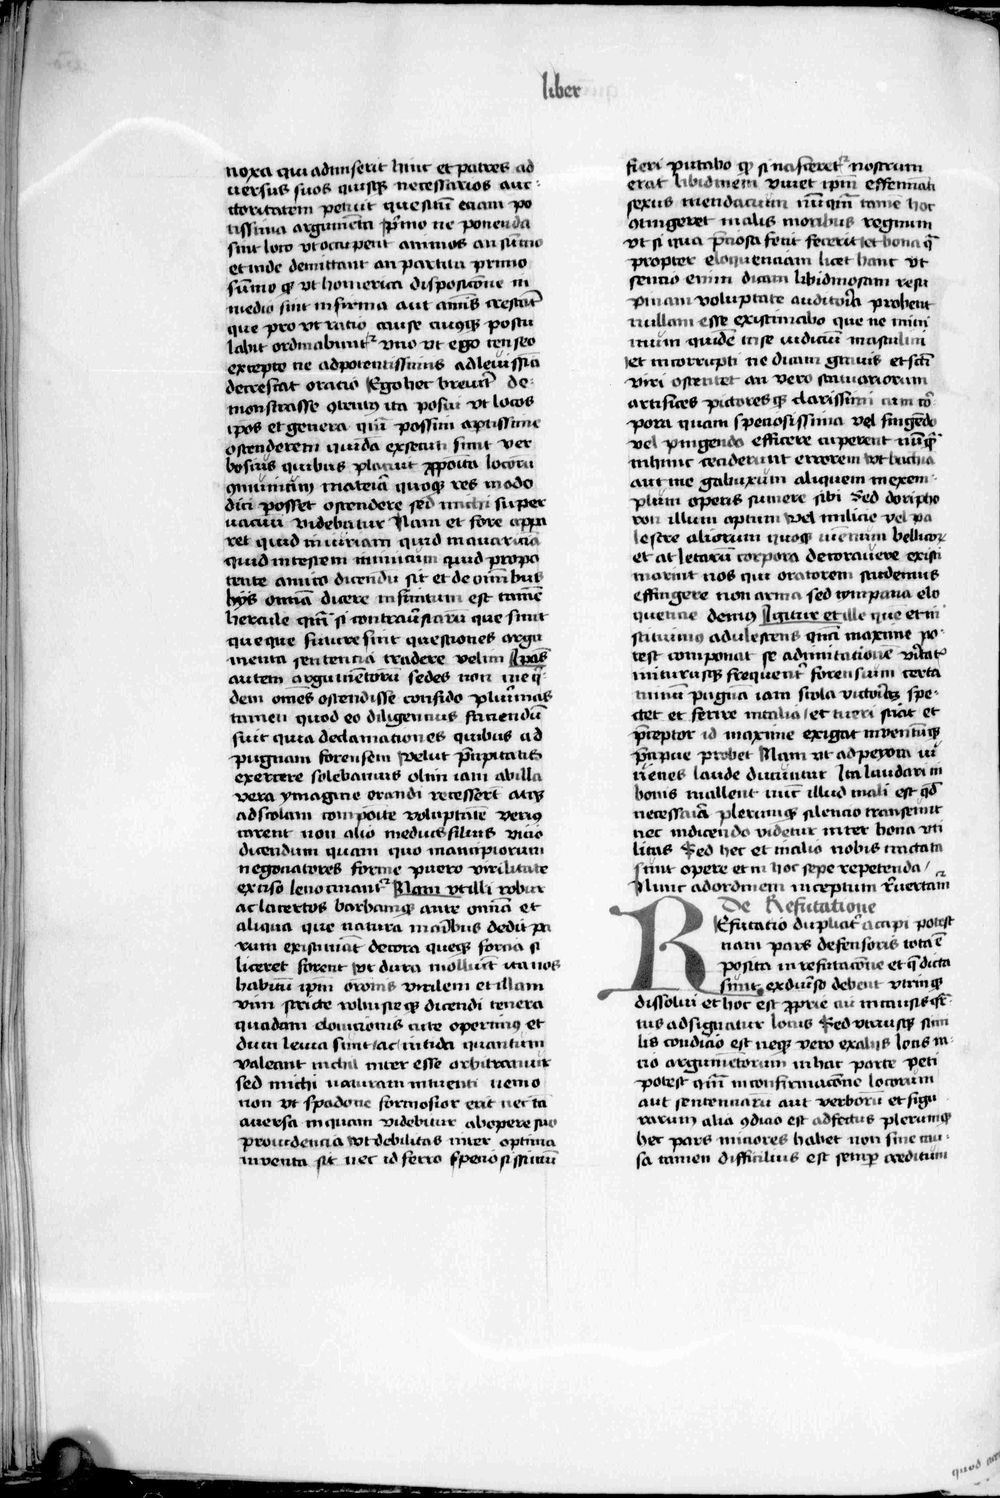 liber
noxa qui admiserit hinc et patres ad
uersus suos quisqꝫ necessarios auc-
ctoritatem petiuit questiũ etiam po
tissima argumẽta pͥmo ne ponenda
sint loco vt occupent animos an sũmo
et inde demittant an partita primo
sũmo qꝫ vt homerica disposicõne in
medio sint infirma aut animis crescãt
que pro vt ratio cause cuiusqꝫ postu
labit ordinabuntᷣ vno vt ego censeo
excepto ne a potentissimis ad leuissĩa
decrescat oracio Ego hec breuitᷣ de-
monstrasse ꝯtentus ita posui vt locos
ip̃os et genera quã possim aptissime
ostenderem quidã exsecuti sunt ver
bosius quibus placuit ꝓposita locorũ
ꝯmuniũ materiã quoqꝫ res modo
dici posset ostendere sed michi super
uacuũ videbatur Nam et fere appa
ret quid in iuriam quid in auariciã
quid in testem inimicum quid in potẽ
tes amicos dicendũ sit et de om̃ibus
hijs omnia dicere infinitum est tamẽ
hercule quã si controuersiarũ que sunt
que que future sint questiones argu
menta sentencias tradere velim Ip̃as
autem argumẽtorũ sedes non me qͥ-
dem om̃es ostendisse confido plurimas
tamen quod eo diligencius faciendũ
fuit quia declamationes quibus ad
pugnam forensem velut p̃pilatis
exercere solebamus olim iam ab illa
vera ymagine orandi recesserũt atqꝫ
ad solam composite voluptatẽ neruis
carent non alio medius fidius vicio
dicendum quam quo mancipiorum
negociatores forme puero virilitate
exciso lenocinantᷣ Nam vt illi robur
ac lacertos barbamqꝫ ante omnia et
aliqua que natura maribus dedit pa
rum existimãt decora queqꝫ forcia si
liceret forent vt dura molliũt ita nos
habitũ ip̃m oracõis virilem et illam
vim stricte robusteqꝫ dicendi tenera
quadam elocucionis cute operimus et
dum leuia sunt ac nitida quantum
valeant nichil inter esse arbitramur
sed michi naturam intuenti nemo
non vir spadone formosior erit nec tã
auersa inquam videbitur ab opere suo
prouidencia vt debilitas inter optima
inuenta sit nec id ferro speciosissimũ
fieri putabo qꝫ si nasceretᷣ nostrum
erat libidinem iuuet ip̃m effeminati
sexus mendacium nũqͣm tamẽ hoc
ꝯtingeret malis moribus regnum
vt si qua p̃ciosa fecit fecerit et bona qͥ
propter eloquenciam licet hanc vt
sentio enim dicam libidinosam resu
pinam voluptate auditoria probent
nullam esse existimabo que ne mini
mum quidẽ in se iudicium masculini
et incorrupti ne dicam grauis et sctĩ
viri ostentet an vero statuariorum
artifices pictoresqꝫ clarissimi cum cor-
pora quam speciosissima vel fingẽdo
vel pingendo efficere cuperent nũqͣ
in hunc ceciderunt errorem vt bachia
aut me gabuxum aliquem in exem-
plum operis sumere sibi Sed doripho
ron illum aptum vel milicie vel pa
lestre aliorum quoqꝫ iuuenum bellicoꝝ
et atletarũ corpora decora vere existi
marint nos qui oratorem studemus
effingere non arma sed tympana elo
quencie demus Igitur et ille que et in
stituimus adulescens quã maxime po-
test componat se ad imitacionẽ veritatᷣ
initurusqꝫ frequentᷣ forensium certa
minũ pugnã iam scola victoriaꝫ spe-
ctet et ferire in talia et tueri sciat et
p̃ceptor id maxime exigat inuentũqꝫ
p̃cipue probet Nam vt ad peyora iu
uenes laude ducuntur Ita laudari in
bonis mallent nunc illud mali est qd̃
necessaria plerumqꝫ silencio transeunt
nec in dicendo videtur inter bona vti
litas Sed hec et in alio nobis tractata
sunt opere et in hoc sepe repetenda /
Nunc ad ordinem inceptum reuertamᷣ
De Refutatione
REfutacio duplicitᷣ accipi potest
nam pars defensoris tota ẽ
posita in refutacõne et qͥ dicta
sunt ex diũso debent vtrinqꝫ
dissolui et hoc est ꝓprie cui in causis qͣr
tus adsignatur locus Sed vtriusqꝫ simi
lis condicio est neqꝫ vero ex alijs locis ra-
cio argumẽtorum in hac parte peti
potest quã in confirmacõne locorum
aut sentenciarũ aut verborũ et figu
rarum alia ꝯdicio est adfectus plerumqꝫ
hec pars minores habet non sine cau-
sa tamen difficilius est semꝑ creditum
quod